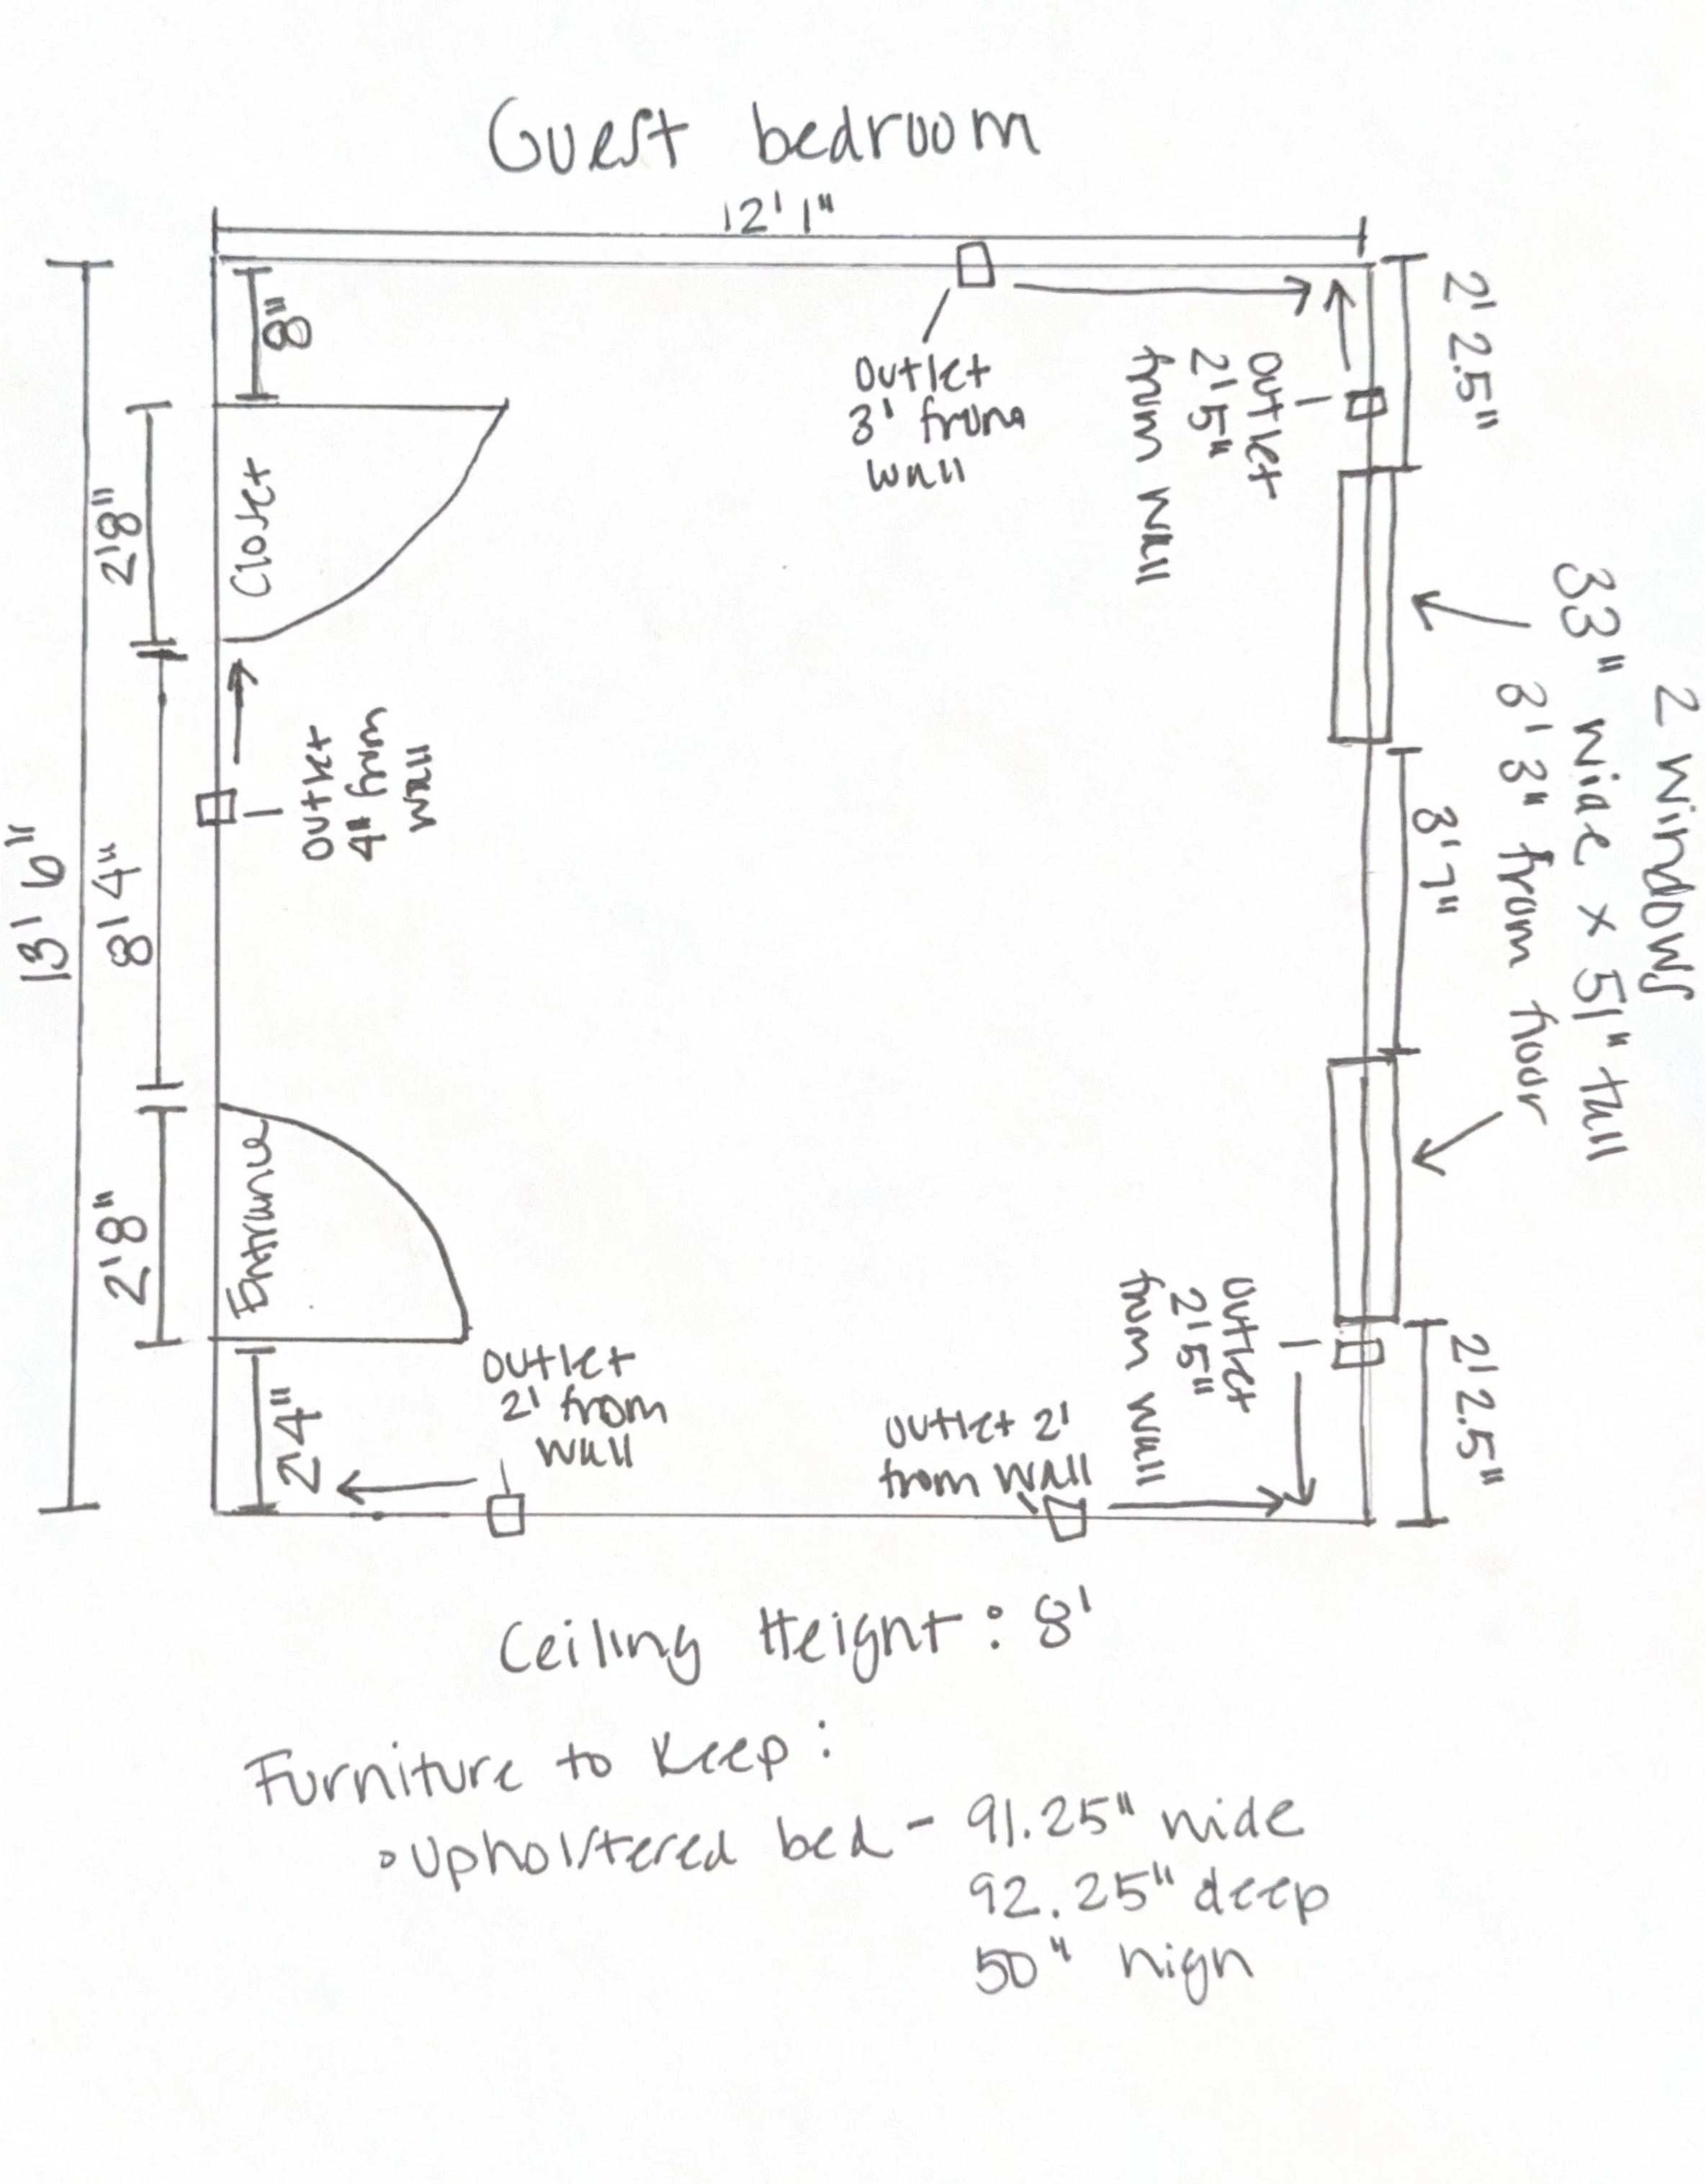 Guest bedroom
12' 1"
8"
Outlet
3' from
wall
Outlet
2' 5"
from wall
2' 2.5"
2'8"
Closet
2 windows
33" wide x 51" tall
3' 3" from floor
Outlet
4" from
wall
3' 7"
13' 6"
8' 4"
2'8"
Entrance
24"
Outlet
2' from
wall
Outlet 2'
from wall
Outlet
2' 5"
from wall
2' 2.5"
Ceiling Height: 8'
Furniture to Keep:
• Upholstered bed - 91.25" wide
92.25" deep
50" high